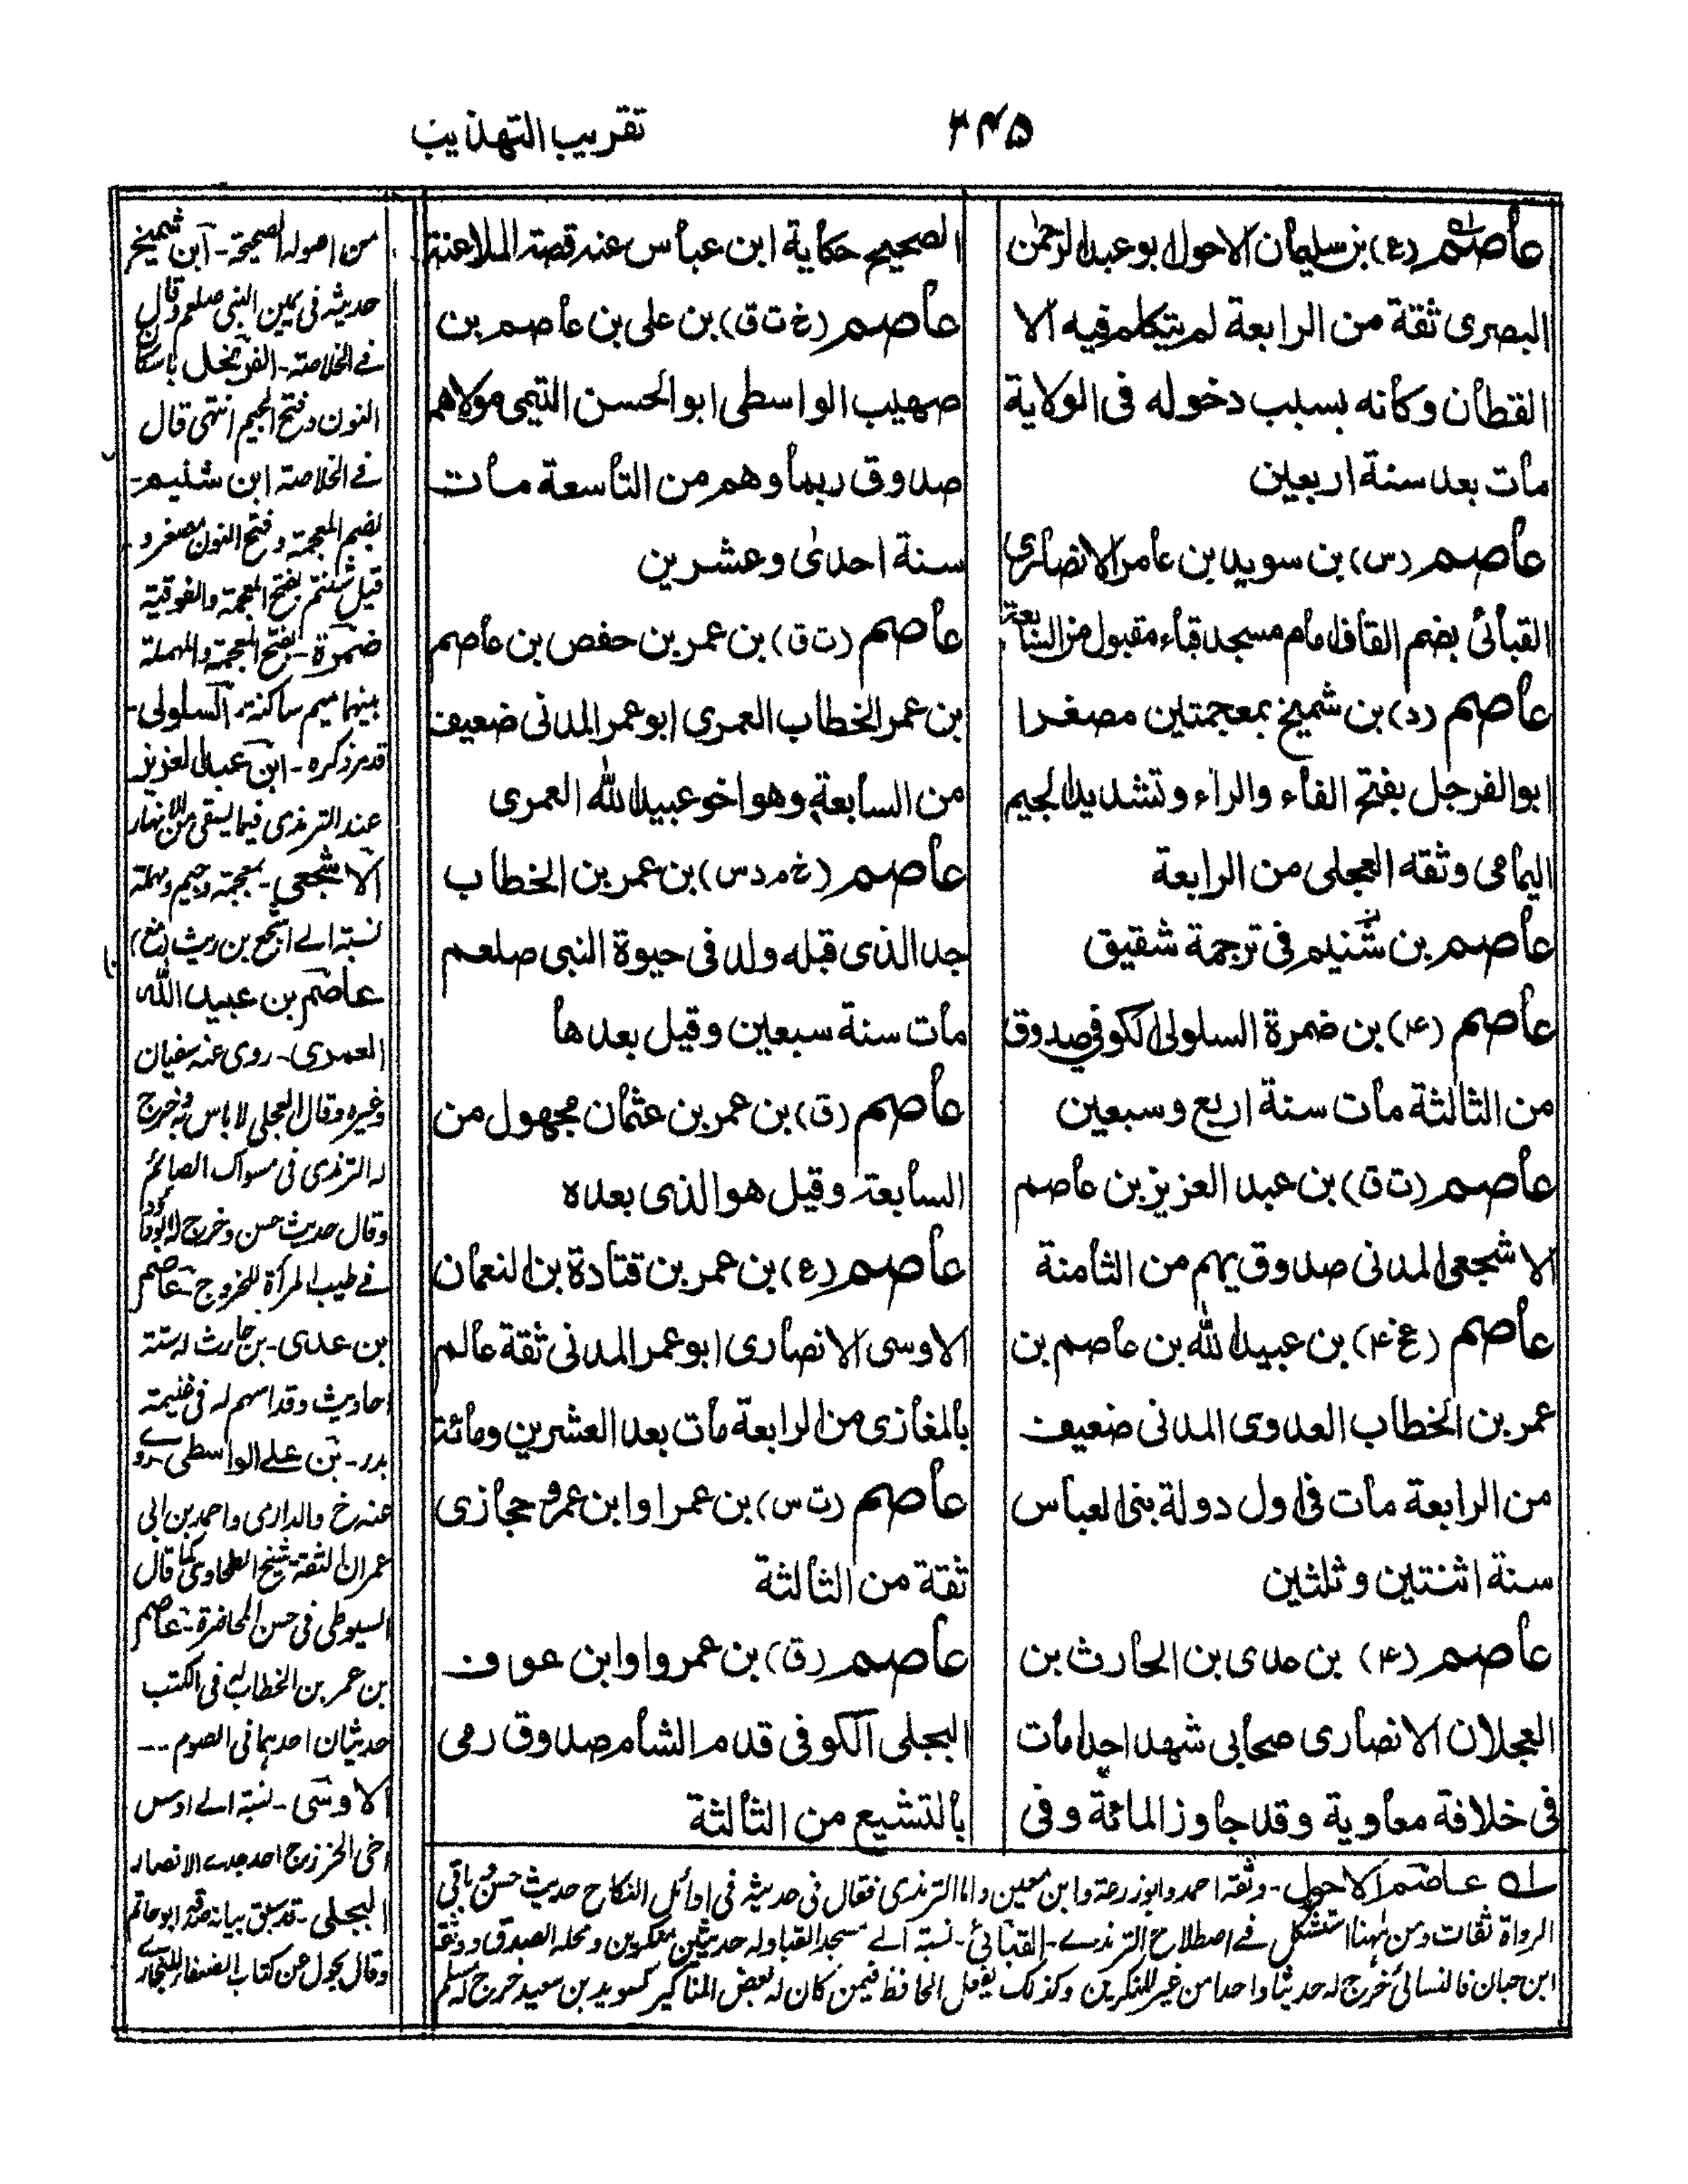 تقريب التهذيب
۲۴۵
عاصم (ع) بن سليمان الاحول ابو عبد الرحمن
البصرى ثقة من الرابعة لم يتكلم فيه الا
القطان وكانه بسبب دخوله فى الولاية
مات بعد سنة اربعين
عاصم (س) بن سويد بن عامر الانصارى
القبائى بضم القاف امام مسجد قباء مقبول من السابعة
عاصم (د) بن شميخ بمعجمتين مصغرا
ابو الفرجل بفتح الفاء والراء وتشديد الجيم
اليمامى وثقه العجلى من الرابعة
عاصم بن شنيم فى ترجمة شقيق
عاصم (۴) بن ضمرة السلولى الكوفى صدوق
من الثالثة مات سنة اربع وسبعين
عاصم (ت ق) بن عبد العزيز بن عاصم
الاشجعى المدنى صدوق يهم من الثامنة
عاصم (عخ ۴) بن عبيد الله بن عاصم بن
عمر بن الخطاب العدوى المدنى ضعيف
من الرابعة مات فى اول دولة بنى العباس
سنة اثنتين وثلثين
عاصم (۴) بن عدى بن الحارث بن
العجلان الانصارى صحابى شهد احدا مات
فى خلافة معاوية وقد جاوز المائة وفى
الصحيح حكاية ابن عباس عنه قصة الملاعنة
عاصم (خ ت ق) بن على بن عاصم بن
صهيب الواسطى ابو الحسن التيمى مولاهم
صدوق ربما وهم من التاسعة مات
سنة احدى وعشرين
عاصم (ت ق) بن عمر بن حفص بن عاصم
بن عمر الخطاب العمرى ابو عمر المدنى ضعيف
من السابعة وهو اخو عبيد الله العمرى
عاصم (خ م د س) بن عمر بن الخطاب
جد الذى قبله ولد فى حيوة النبى صلعم
مات سنة سبعين وقيل بعدها
عاصم (ق) بن عمر بن عثمان مجهول من
السابعة وقيل هو الذى بعده
عاصم (ع) بن عمر بن قتادة بن النعمان
الاوسى الانصارى ابو عمر المدنى ثقة عالم
بالمغازى من الرابعة مات بعد العشرين ومائة
عاصم (ت س) بن عمر او ابن عمرو حجازى
ثقة من الثالثة
عاصم (ق) بن عمرو او ابن عوف
البجلى الكوفى قدم الشام صدوق رمى
بالتشيع من الثالثة
من اصوله الصحيحة - ابن شميخ
حديثه فى يمين النبى صلعم وقال
فى الخلاصة - الفرنجل باسكان
النون وفتح الجيم انتهى قال
فى الخلاصة ابن شنيم -
بضم المعجمة وفتح النون مصغر و
قيل شنتم بفتح المعجمة والفوقية
ضمرة - بفتح المعجمة والمهملة
بينهما ميم ساكنة - السلولى -
قد مر ذكره - ابن عبد العزيز
عند الترمذى فيما يسقى من الانهار
الاشجعى - بمعجمة وجيم ومهملة
نسبة الى اشجع بن ريث (مغ)
عاصم بن عبيد الله
العمرى - روى عنه سفيان
وغيره وقال العجلى لا باس به وخرج
له الترمذى فى مسواك الصائم
وقال حديث حسن وخرج له ابو داود
فى طيب المرأة للخروج - عاصم
بن عدى - بن حارث له ستة
احاديث وقد اسهم له فى غنيمة
بدر - بن على الواسطى - روى
عنه خ والدارمى واحمد بن ابى
عمران الثقة شيخ الطحاوى كما قال
السيوطى فى حسن المحاضرة - عاصم
بن عمر بن الخطاب له فى الكتب
حديثان احدهما فى الصوم ...
الاوسى - نسبة الى اوس
اخى الخزرج احد جدى الانصار
البجلى - قد سبق بيانه صدقه ابو حاتم
وقال يحول عن كتاب الضعفاء للبخارى
له عاصم الاحول - وثقه احمد وابو زرعة وابن معين واما الترمذى فقال فى حديثه فى اوائل النكاح حديث حسن و باقى
الرواة ثقات ومن ههنا استشكل فى اصطلاح الترمذى - القبائى - نسبة الى مسجد القبا وله حديثين منكرين ومحله الصدق ووثقه
ابن حبان فالنسائى خرج له حديثا واحدا من غير المنكرين وكذلك يفعل الحافظ فيمن كان له بعض المناكير كسويد بن سعيد خرج له مسلم